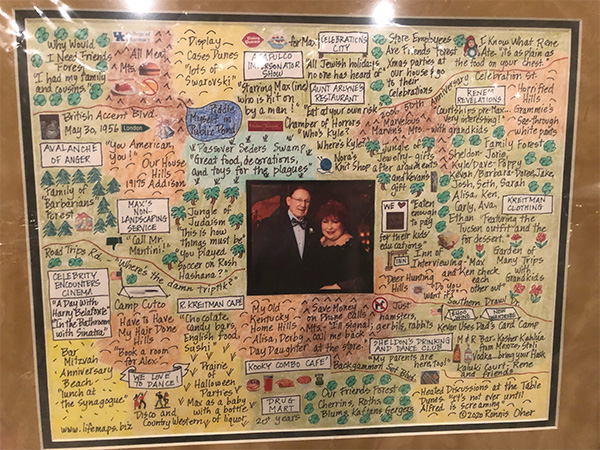 College of Pharmacy
Why Would
I Need Friends
Forest
"I had my family
and cousins"
"All Men"
Mts.
"Display
Cases Dunes
"lots of
Swarovski"
for Max
ACAPULCO
IMPERSONATOR
SHOW
"Starring Max (Ine)
who is hit on
by a man!"
CELEBRATIONS
CITY
"All Jewish holidays
no one has heard of"
AUNT ARLYNE'S
RESTAURANT
"Eat at your own risk"
Chamber of Horrors
"Who's Kyle?"
Where's Kyle?
Store Employees
Are Friends Forest
Xmas parties at
our house & go
to their
Celebrations
I Know What Rene
Ate- "it's as plain as
the food on your chest."
Celebration St.
30th 50th Anniversary
Marvelous
Marvins Mts.
RENEM
REVELATIONS
"Courtships pre-Max...
very interesting!"
with grandkids
Horrified
Hills
"Grammie's
See-through
white pants"
British Accent Blvd.
May 30, 1956
London
Piddle
Myself in
Public Pond
AVALANCHE
OF ANGER
"You American,
You!"
Our House
Hills
19175 Addison
Passover Seders Swamp
"Great food, decorations,
and toys for the plagues"
Nora's
Knit Shop
Jungle of
Jewelry-gifts
after arguments
and Kevan's
gift
Family Forest
Sheldon, Jorie,
Kyle/Dave, Poppy
Kevan/Barbara-Paige, Jake,
Josh, Seth, Sarah
Alisa, Ken,
Carly, Ava,
Ethan
KREITMAN
CLOTHING
"Featuring the
Tucson outfit" and the
for dessert.
Family of
Barbarians
Forest
MAX'S
NON-
LANDSCAPING
SERVICE
"Call Mr.
Mantini!"
Jungle of
Judaism
"This is how
things must be
You played
soccer on Rosh
Hashana?"
WE
"Eaten
enough
to pay
for their kids'
educations"
Inn of
Interviewing-Max
and Ken check
each
other out
INN
"Deer Hunting
Hills
"Do you
want it?"
Southern Drawl
Garden of
Many Trips
with
Grandkids
Road Trips Rd.
"Where's the
damn triptik?"
CELEBRITY
ENCOUNTERS
CINEMA
"A Day With
Harry Belafonte"
"In the Bathroom
with Sinatra"
Camp Cutco
Have to Have
My Hair Done
Hills
"Book a room
for Alex"
R. KREITMAN CAFE
"Chocolate,
candy bars,
English food,
sushi"
My Old
Kentucky
Home Hills
Alisa, Derby
Day Daughter
Save Money
on Phone Calls
Mts.- "I'll signal,
call me back
at the store."
Just
hamsters,
gerbils, rabbits
Kevan Uses Dad's Card Camp
SHELDON'S DRINKING
AND DANCE CLUB
"My parents are
here, too!"
M & R Bar- Kosher Kahlua
from Mexico, Stoli
Vodka...bring your flask
Kaluki Court- Rene
and friends
Bar
Mitzvah
Anniversary
Beach-
"lunch at
the synagogue"
WE LOVE
TO DANCE!
Disco and
Country Western
Prairie
of
Halloween
Parties
Max as a baby
with a bottle
of liquor
KOOKY COMBO CAFE'
Backgammon Set Blvd.
DRUG
MART
20+ years
Our Friends Forest
Cherrins, Roths,
Blums, Kaftans, Gergers
Heated Discussions at the Table
Dunes "it's not over until
Alfred is screaming"
www.lifemaps.biz
©2020 Ronnis Oher